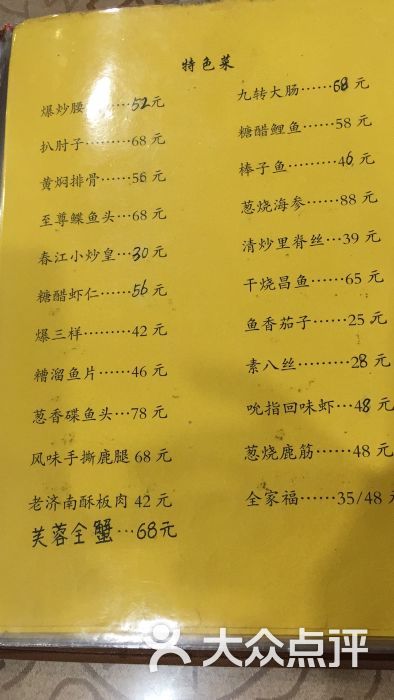 特色菜
爆炒腰……52元
扒肘子………68元
黄焖排骨……56元
至尊鲽鱼头…68元
春江小炒皇…30元
糖醋虾仁……56元
爆三样………42元
糟溜鱼片……46元
葱香碟鱼头…78元
风味手撕鹿腿 68元
老济南酥板肉 42元
芙蓉全蟹…68元
九转大肠……68元
糖醋鲤鱼……58元
棒子鱼………46元
葱烧海参……88元
清炒里脊丝…39元
干烧昌鱼……65元
鱼香茄子……25元
素八丝………28元
吮指回味虾…48元
葱烧鹿筋……48元
全家福……35/48元
大众点评